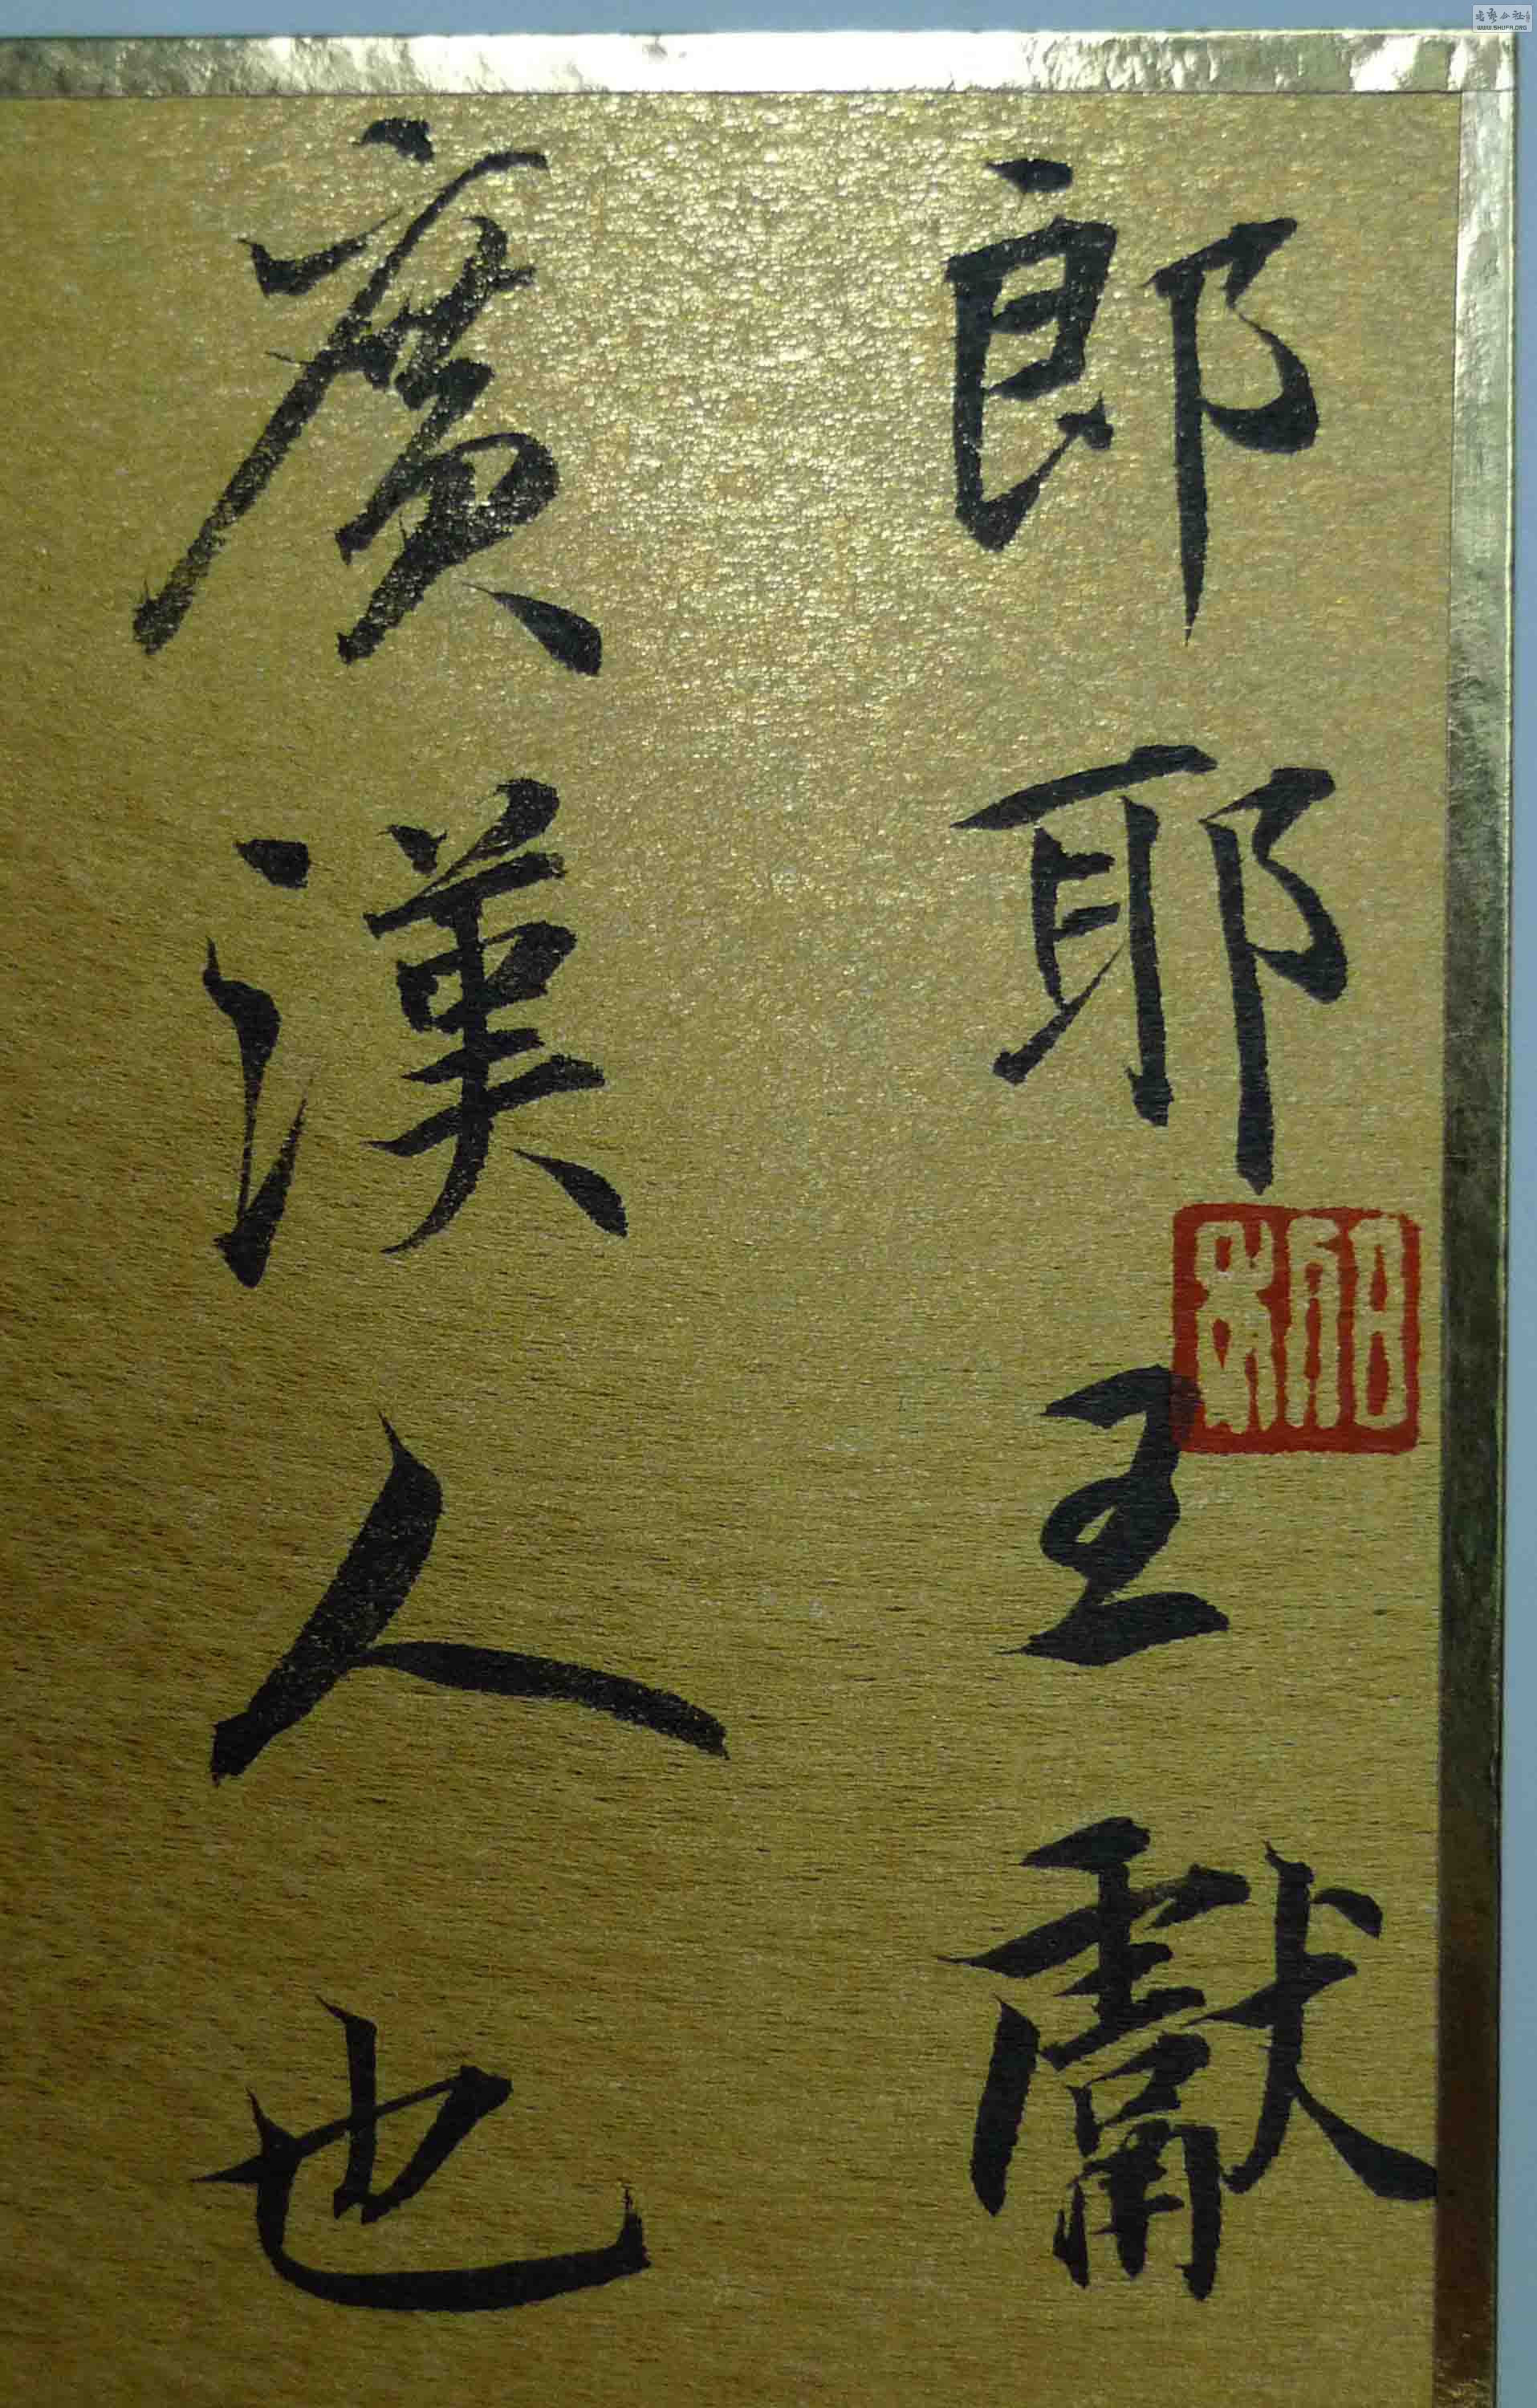 郎耶王獻
廣漢人也
WWW.SHUFA.ORG